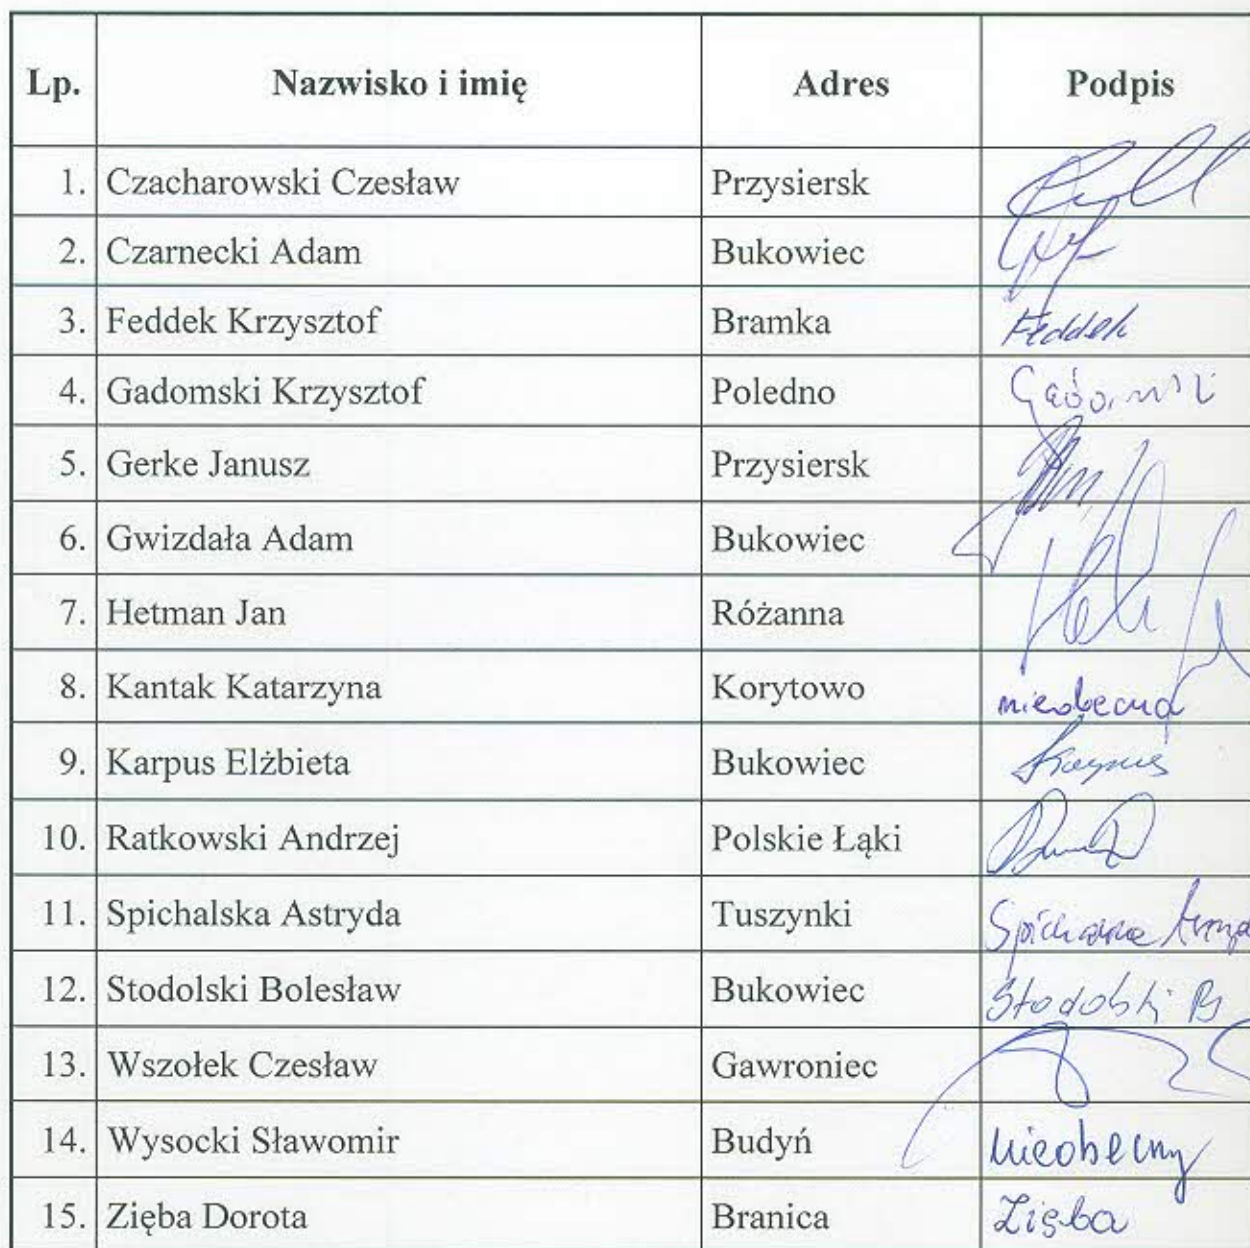 Lp. Nazwisko i imię Adres Podpis
1. Czacharowski Czesław Przysiersk
2. Czarnecki Adam Bukowiec
3. Feddek Krzysztof Bramka Feddek
4. Gadomski Krzysztof Poledno
5. Gerke Janusz Przysiersk
6. Gwizdała Adam Bukowiec
7. Hetman Jan Różanna
8. Kantak Katarzyna Korytowo nieobecna
9. Karpus Elżbieta Bukowiec Karpus
10. Ratkowski Andrzej Polskie Łąki
11. Spichalska Astryda Tuszynki
12. Stodolski Bolesław Bukowiec Stodolski B
13. Wszołek Czesław Gawroniec
14. Wysocki Sławomir Budyń nieobecny
15. Zięba Dorota Branica Zięba